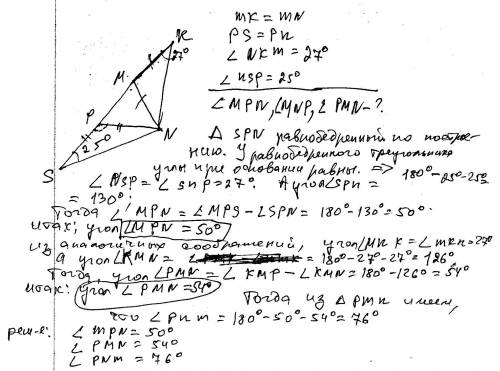 MK = MN
PS = PN
∠NKM = 27°
∠NSP = 25°
∠MPN, ∠MNP, ∠PMN - ?
K
27°
M
P
25°
N
S
△ SPN равнобедренный по построе-
нию. У равнобедренного треугольника
углы при основании равны. =>
∠NSP = ∠SNP = 27°. А угол ∠SPN = 180° - 25° - 25°
= 130°.
Тогда ∠MPN = ∠MPS - ∠SPN = 180° - 130° = 50°.
итак: угол ∠MPN = 50°
из аналогичных соображений, угол ∠MNK = ∠MKN = 27°
а угол ∠KMN = 180° - 27° - 27° = 126°
Тогда, угол ∠PMN = ∠KMP - ∠KMN = 180° - 126° = 54°
итак: угол ∠PMN = 54°
Тогда из △ PMN имеем,
что ∠PNM = 180° - 50° - 54° = 76°
реш-е: ∠MPN = 50°
∠PMN = 54°
∠PNM = 76°